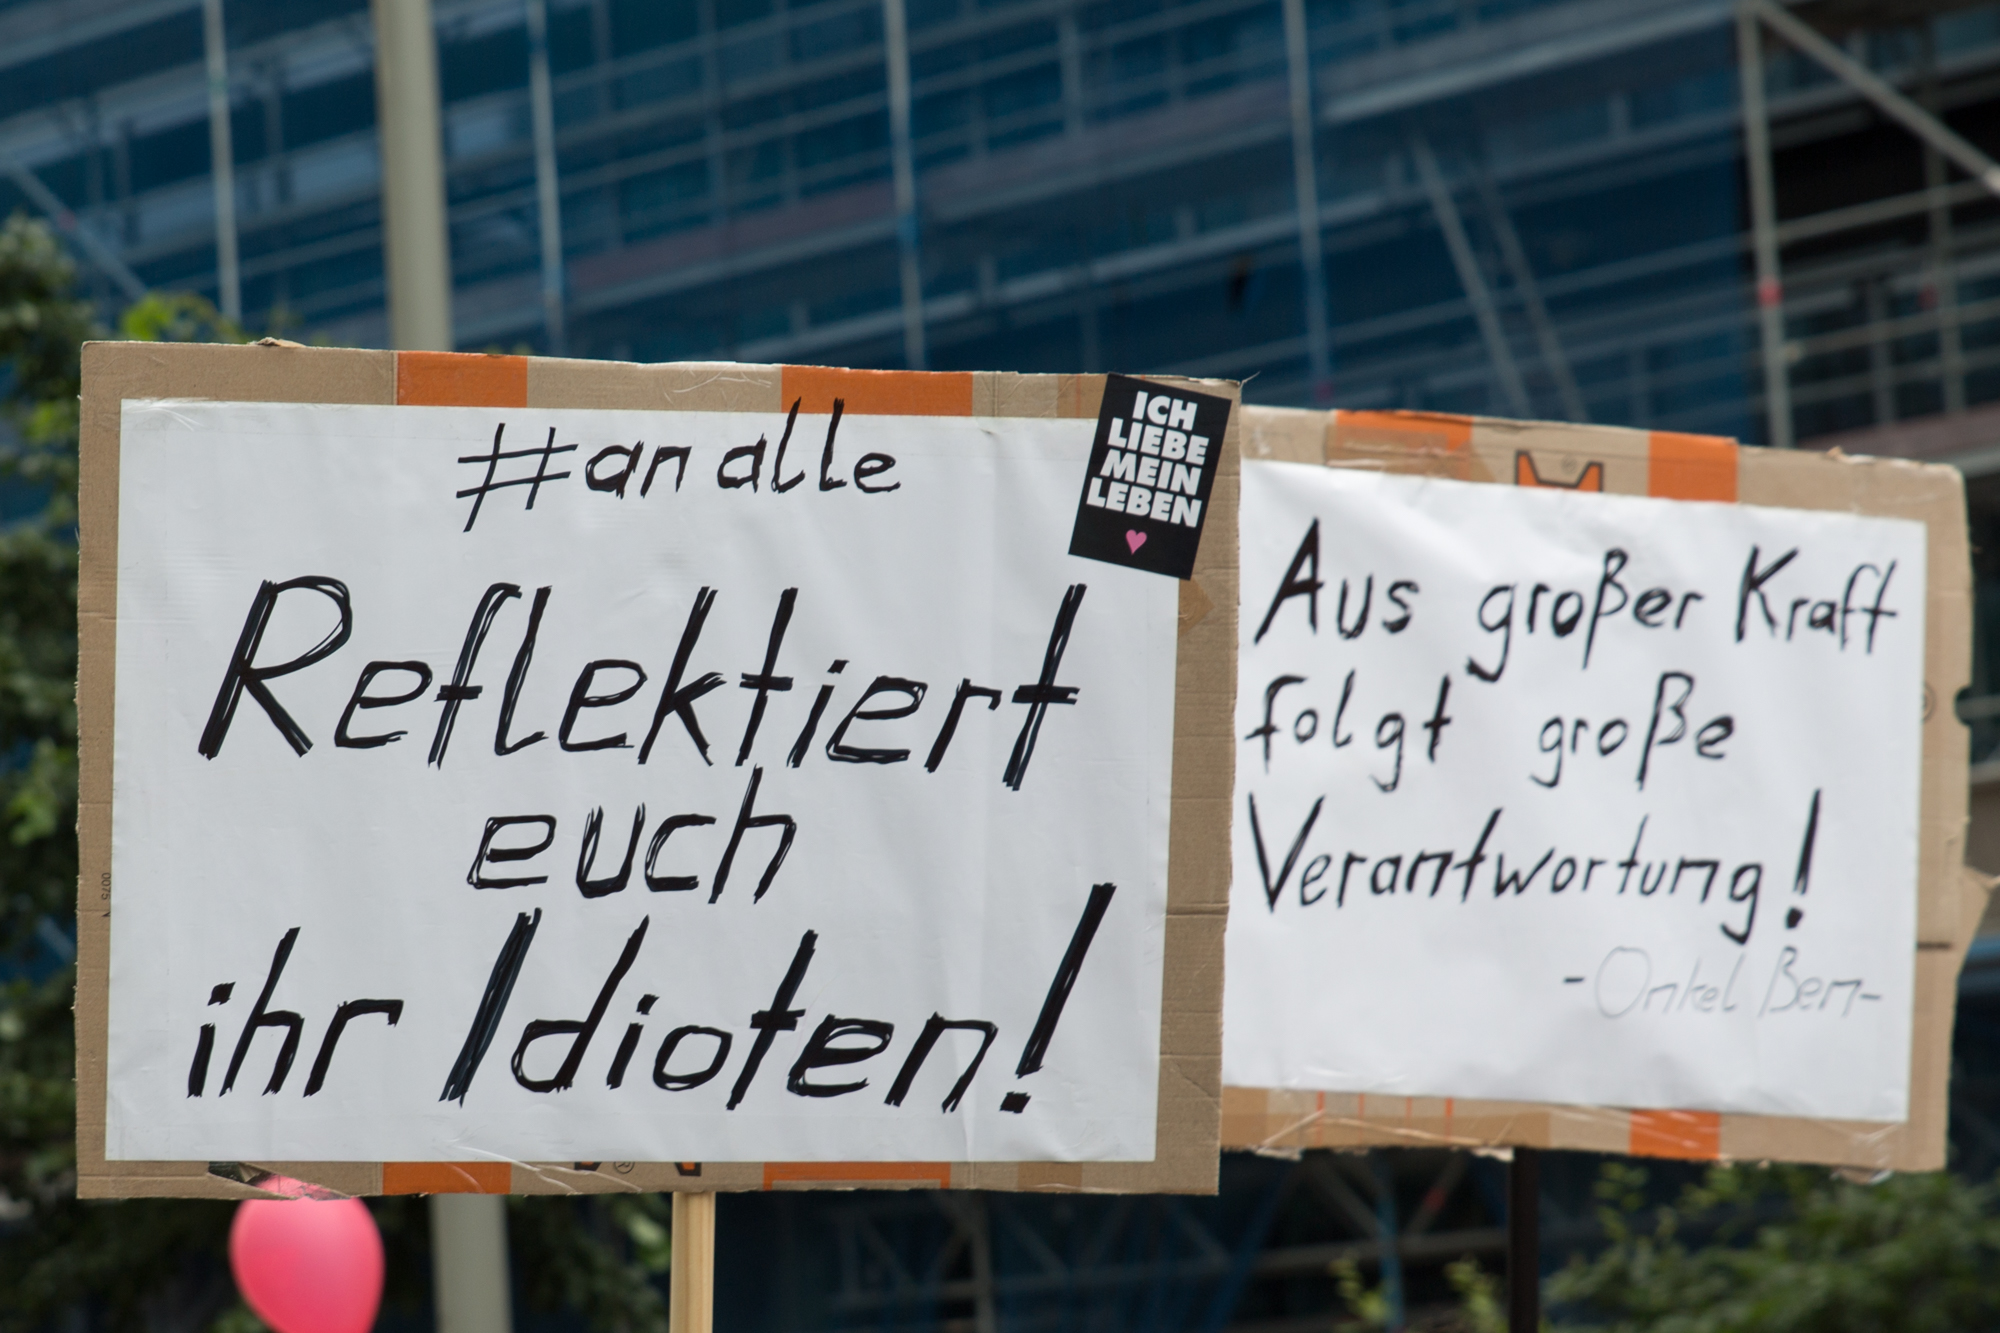 #an alle
Reflektiert
euch
ihr Idioten!
ICH
LIEBE
MEIN
LEBEN
Aus großer Kraft
folgt große
Verantwortung!
-Onkel Ben-